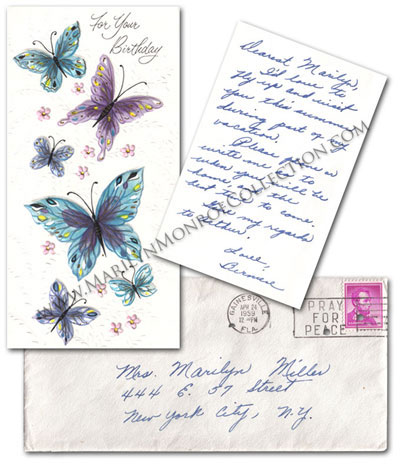 For Your
Birthday
Dearest Marilyn,
I'd love to
fly up and visit
you this summer
during part of my
vacation.
Please
write me
when you will be
home the
best time to come
Give my regards
to Arthur.
Love,
Berniece
W.MARILYNMONROECOLLECTION.COM
GAINESVILLE
APR 24
1959
PM
FLA.
PRAY
FOR
PEACE
Mrs. Marilyn Miller
444 E. 57 Street
New York City, N.Y.